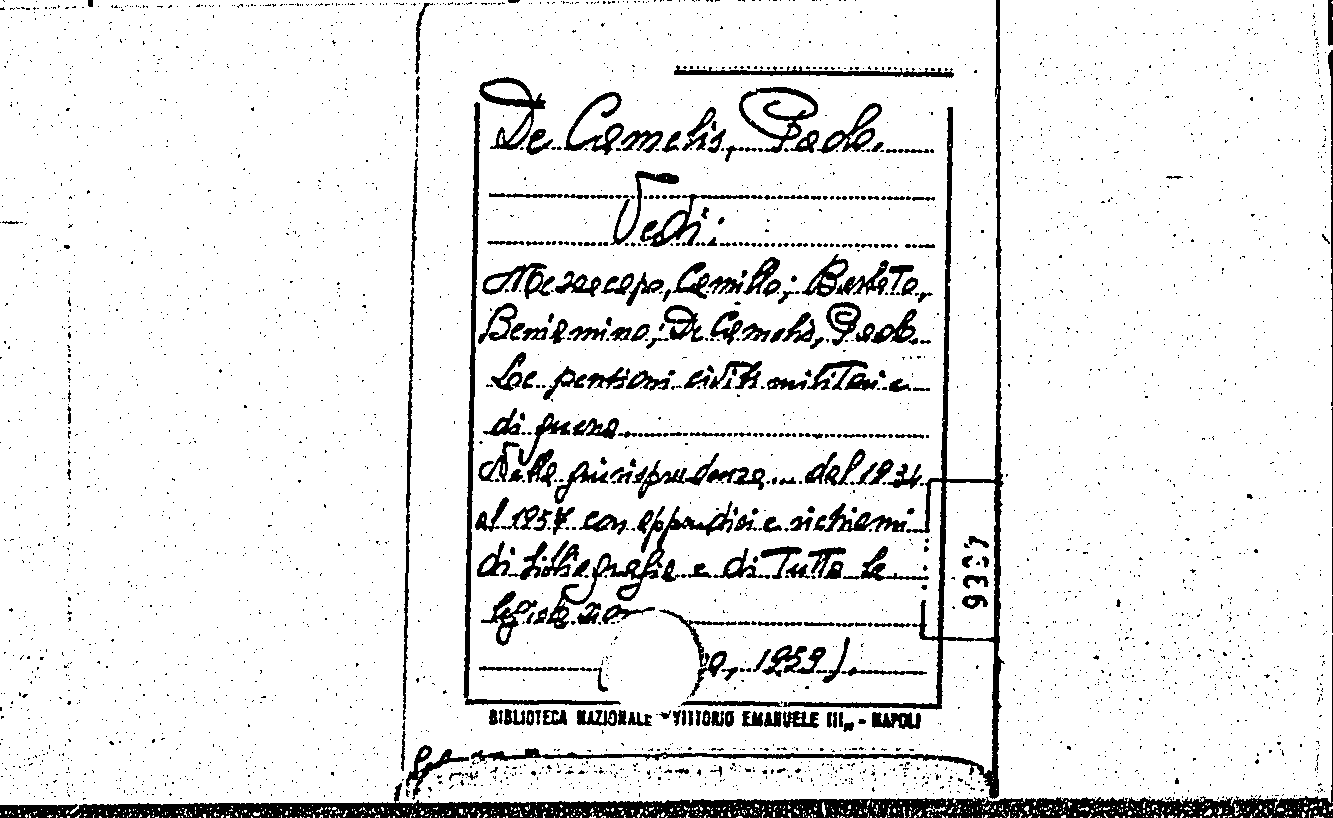 De Camelis, Paolo.
Vedi:
Mezzacapo, Camillo; Bertèto,
Beniamino; De Camelis, Paolo.
Le pensioni civili militari e
di guerra.
Nella giurisprudenza... dal 1934
al 1957 con appendici e richiami
di bibliografia e di tutta la
legislazion
, 1959).
BIBLIOTECA NAZIONALE "VITTORIO EMANUELE III„ - NAPOLI
9337